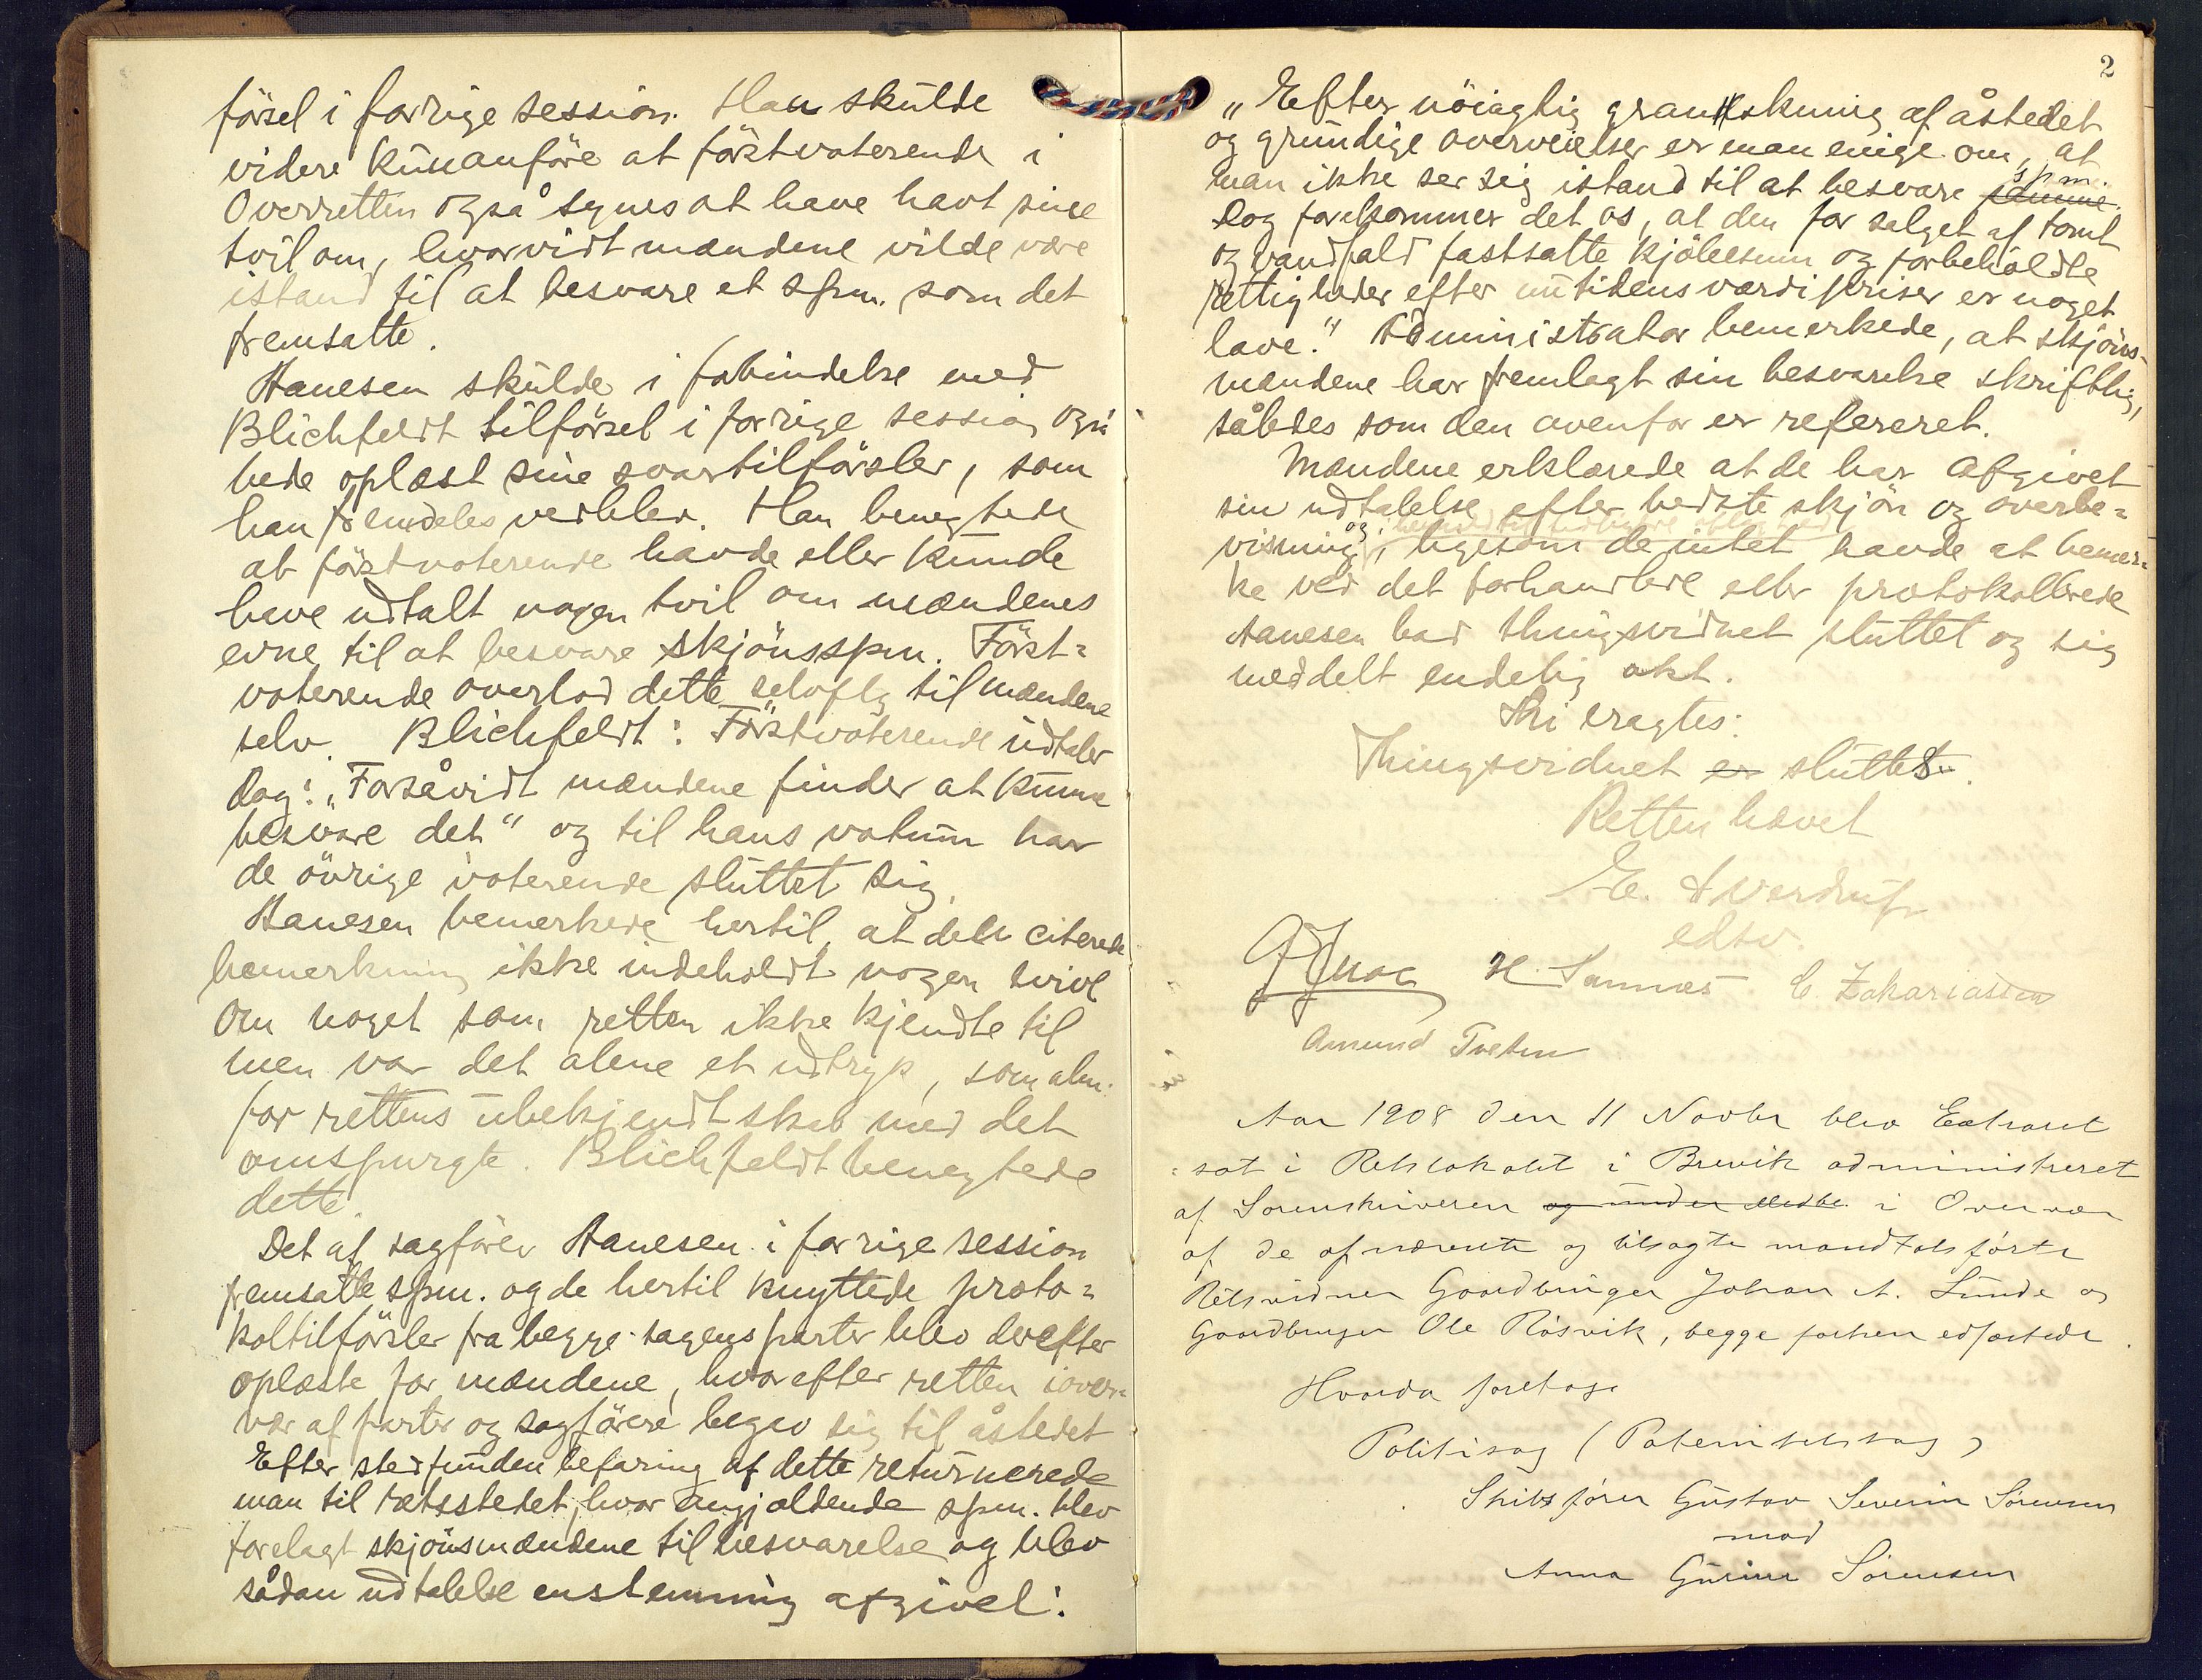 försel i forrige session. Han skulde
videre kun anföre at förstvoterende i
Overretten også synes at have havt sine
tvil om, hvorvidt mændene vilde være
istand til at besvare et spm. som det
fremsatte.
Hanesen skulde i forbindelse med
Blichfeldt tilförsel i forrige session også
bede oplæst sine svartilförsler, som
han fremdeles vedblev. Han benegtede
at förstvoterende havde eller kunde
have udtalt nogen tvil om mændenes
evne til at besvare skjönsspm. Först=
voterende overlod dette selvflg til mændene
selv. Blichfeldt: Förstvoterende udtaler
dog: „Forsåvidt mændene finder at kunne
besvare det" og til hans votum har
de övrige voterende sluttet sig.
Hanesen bemerkede hertil, at den citerede
bemerkning ikke indeholdt nogen tvivl
om noget som retten ikke kjendte til
men var det alene et udtryk, som alm.
for rettens ubekjendtskab med det
omspurgte. Blichfeldt benegtede
dette.
Det af sagförer Hanesen i forrige session
fremsatte spm. og de hertil knyttede proto=
koltilförsler fra begge sagens parter blev derefter
oplæste for mændene, hvorefter retten i over=
vær af parter og sagförere begav sig til åstedet
Efter stedfunden befaring af dette returnerede
man til retsstedet, hvor angjældende spm. blev
forelagt skjönsmændene til besvarelse og blev
sådan udtalelse enstemmig afgivet:
2
„Efter nöiagtig granskning af åstedet
og grundige overveielser er man enige om, at
man ikke ser sig istand til at besvare samme spm.
Dog forekommer det os, at den for salget af tomt
og vandfald fastsatte kjöbesum og forbeholdte
rettigheder efter nutidens værdipriser er noget
lave." Administrator bemerkede, at skjöns-
mændene har fremlagt sin besvarelse skriftlig,
således som den ovenfor er refereret.
Mændene erklærede at de har afgivet
sin udtalelse efter bedste skjön og overbe=
visning, ligesom de intet havde at bemer=
ke ved det forhandlede eller protokollerede
Hanesen bad thingsvidnet sluttet og sig
meddelt endelig akt.
Thi eragtes:
Thingsvidnet er sluttet.
Retten hævet
E. Sverdrup
edsv.
H. Sannæs C. Zakariassen
Amund Tveten
Aar 1908 den 11 Novbr blev Extraret
sat i Retslokalet i Brevik administreret
af Sorenskriveren og under Medbe i Overvær
af de opnævnte og tilsagte mandtalsførte
Retsvidner Gaardbruger Johan A. Lunde og
Gaardbruger Ole Røsvik, begge forhen edfæstede.
Hvorda foretoges
Politisag (Paternitetssag)
Skibsfører Gustav Severin Sörensen
mod
Anna Gurine Sörensen